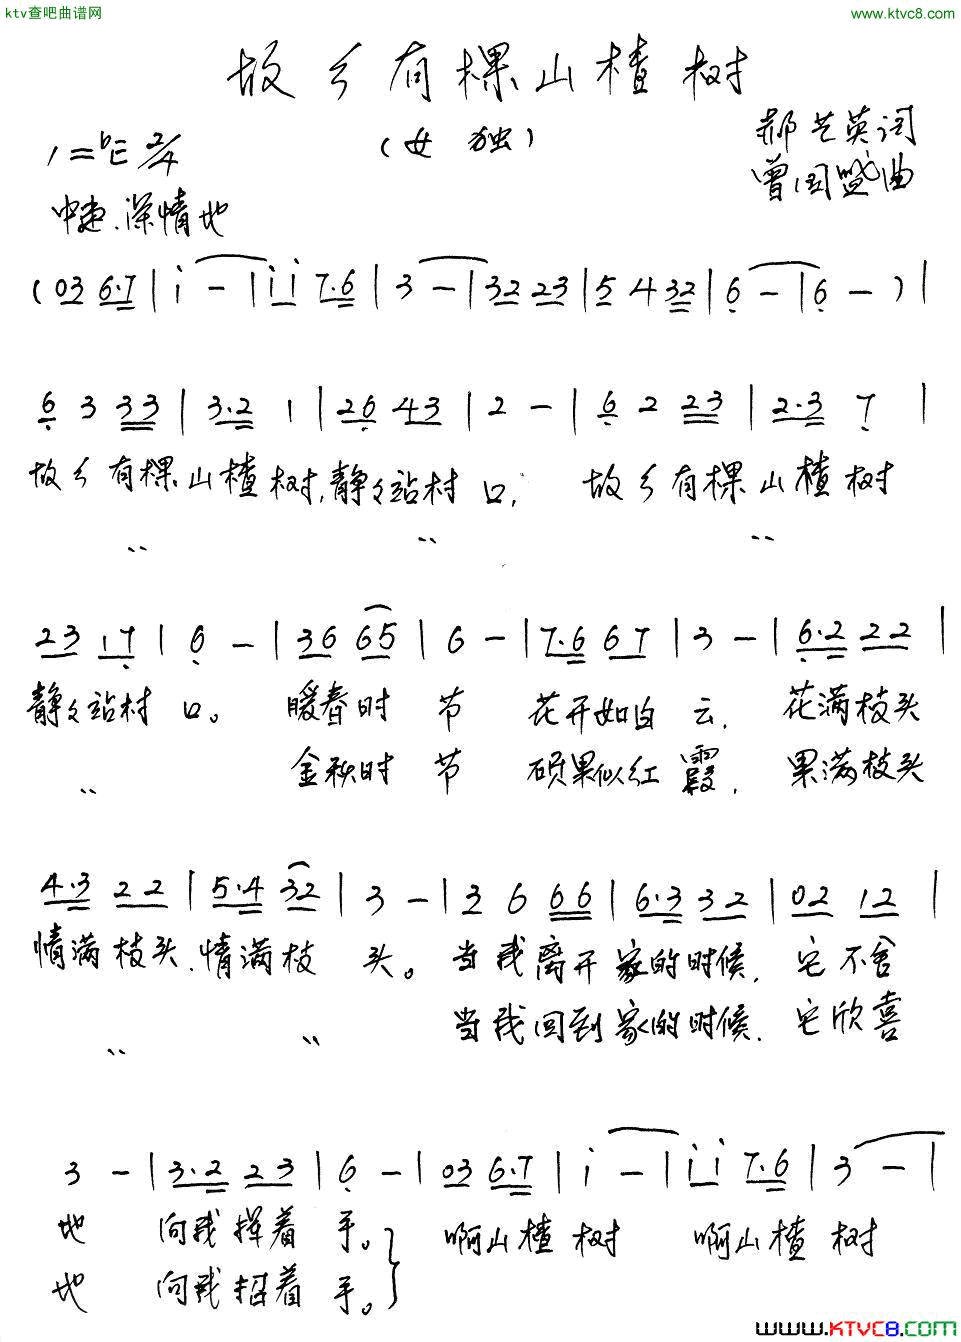 ktv查吧曲谱网
www.ktvc8.com
故乡有棵山楂树
(女 独)
1=♭E 2/4
郝艺英词
曾国盛曲
中速.深情地
(03 6·7 | i - | i i 7·6 | 3 - | 32 23 | 5 4 32 | 6 - | 6 - ) |
6 3 33 | 3·2 1 | 26 43 | 2 - | 6 2 23 | 2·3 7 |
故乡有棵山楂树,静々站村口, 故乡有棵山楂树
〃 〃 〃
23 17 | 6 - | 36 65 | 6 - | 7·6 67 | 3 - | 6·2 22 |
静々站村口。 暖春时 节 花开如白 云, 花满枝头
〃 金秋时 节 硕果似红 霞, 果满枝头
4·3 22 | 5·4 32 | 3 - | 3 6 66 | 6·3 32 | 02 12 |
情满枝头,情满枝 头。 当我离开家的时候, 它不舍
〃 〃 当我回到家的时候, 它欣喜
3 - | 3·2 23 | 6 - | 03 6·7 | i - | i i 7·6 | 3 - |
地 向我挥着 手。 啊山楂树 啊山楂树
地 向我招着 手。
www.KTVC8.com